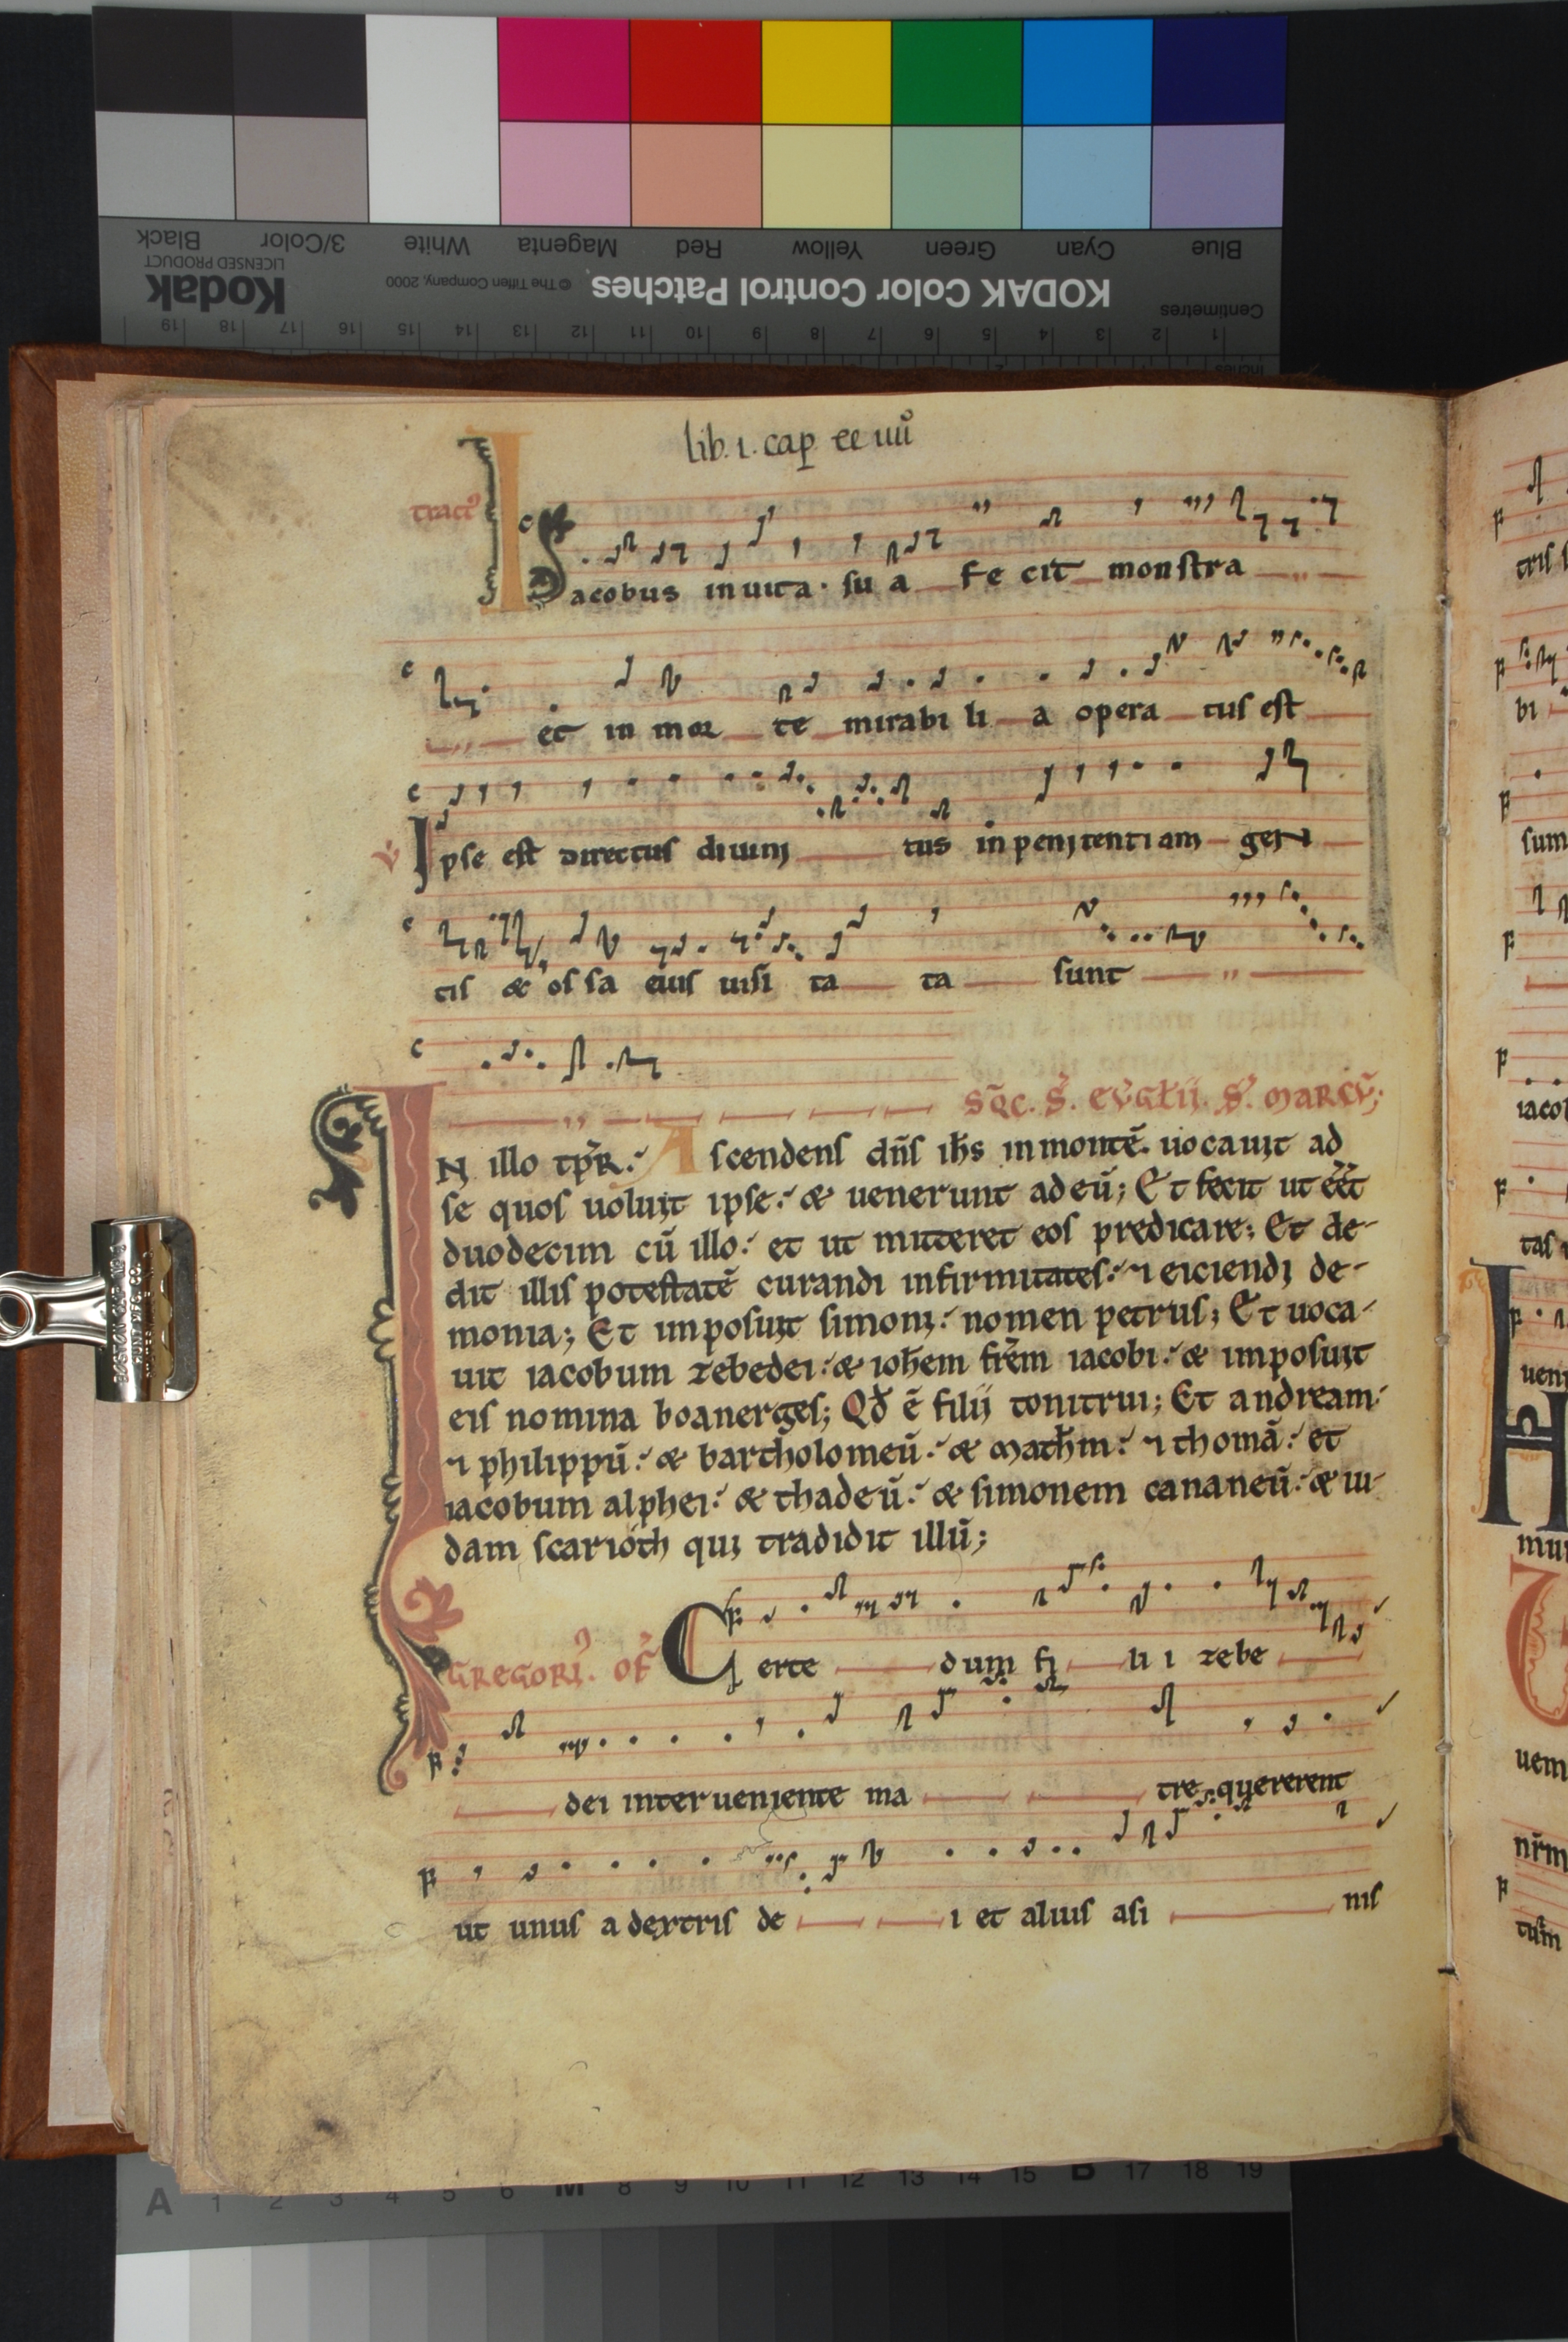 Blue Cyan Green Yellow Red Magenta White 3/Color Black
KODAK Color Control Patches © The Tiffen Company, 2000 Kodak LICENSED PRODUCT
Centimetres 1 2 3 4 5 6 7 8 9 10 11 12 13 14 15 16 17 18 19
lib. 1. cap
tract9
Iacobus in uita sua fecit monstra
et in mor te mirabi li a opera tus est
v̄ Ipse est directus diuini tus in penitentiam gen
tis & ossa eius uisi ta ta sunt
SQ̄C. S̄. EV̄GŁII. S̄. MARCV̄;
IN illo tp̄R. Ascendens dn̄s ih̄s in montē. uocauit ad
se quos uoluit ipse. & uenerunt ad eū; Et fecit ut eēt
duodecim cū illo. et ut mitteret eos predicare; Et de-
dit illis potestatē curandi infirmitates. ⁊ eiciendi de-
monia; Et imposuit simoni. nomen petrus; Et uoca-
uit iacobum zebedei. & ioh̄em fr̄em iacobi. & imposuit
eis nomina boanerges; Qd̄ ē filii tonitrui; Et andream.
⁊ philippū. & bartholomeū. & math̄m. ⁊ thomā. et
iacobum alphei. & thadeū. & simonem cananeū. & iu-
dam scarioth qui tradidit illū;
GREGORI9. OF̄ Certe dum fi li i zebe
dei interueniente ma tre quererent
ut unus a dextris de i et alius asi nis
A 1 2 3 4 5 6 M 8 9 10 11 12 13 14 15 B 17 18 19
tris
bi
sum
iacob
tas
ueni
mun
uem
nr̄m